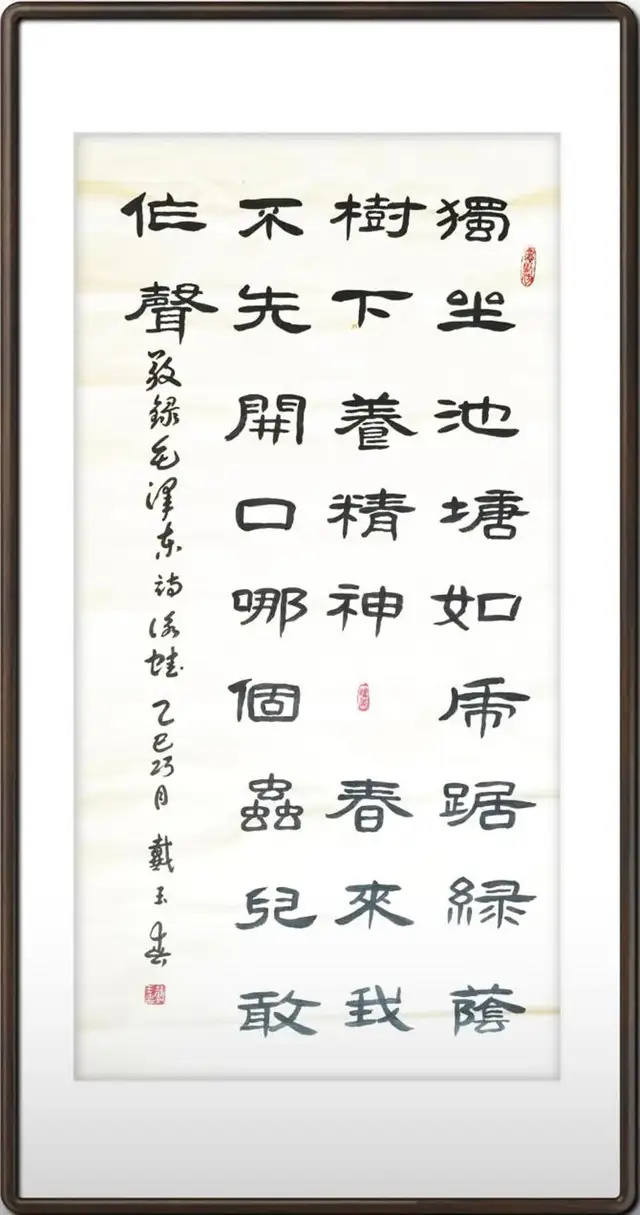 獨坐池塘如虎踞綠蔭
樹下養精神春來我
不先開口哪個蟲兒敢
作聲
敬録毛澤东詩詠蛙乙巳巧月戴玉春